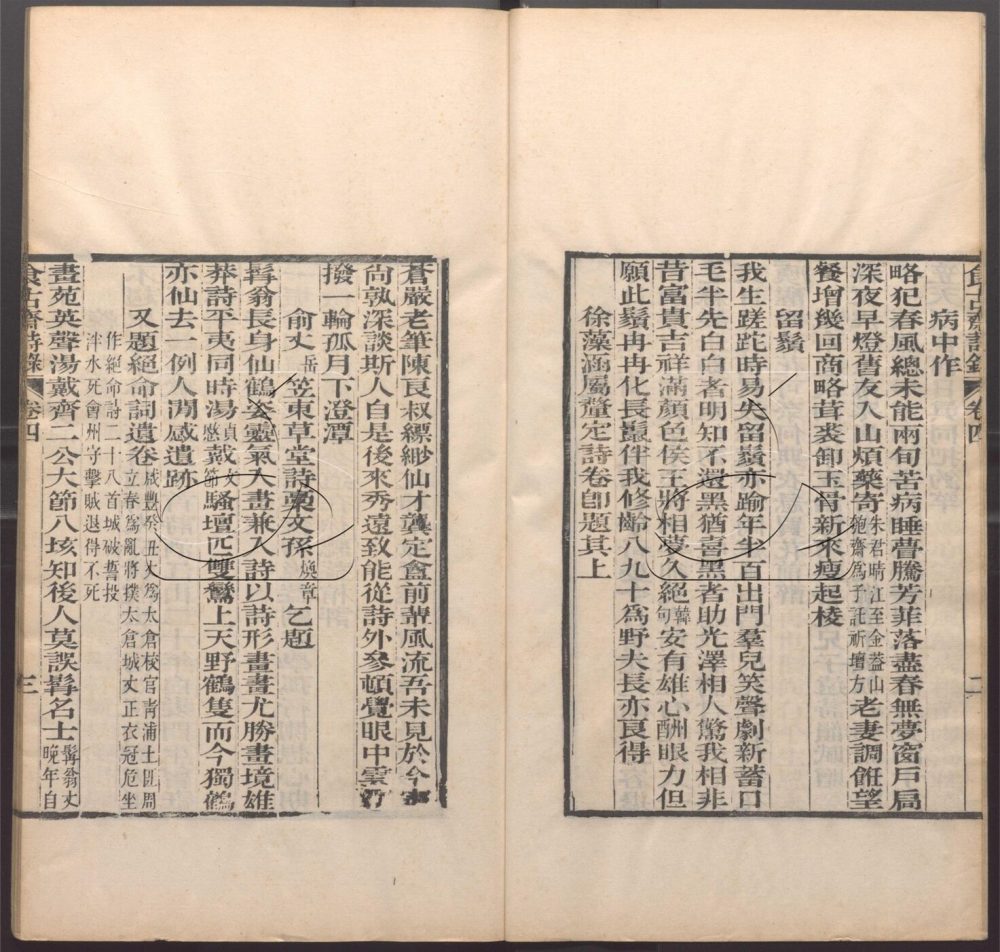 病中作
略犯春風總未能兩旬苦病睡瞢騰芳菲落盡春無夢窗戶局
深夜早燈舊友入山煩藥寄朱君晴江至金蓋山匏齋為予託祈壇方老妻調餅望
餐增幾回商略葺裘卸玉骨新來瘦起棱
留鬚
我生蹉跎時易失留鬚亦踰年半百出門羣兒笑聲劇新蓄口
毛半先白白者明知不還黑猶喜黑者助光澤相人驚我相非
昔富貴吉祥滿顏色侯王將相夢久絕韓句安有雄心酬眼力但
願此鬚冉冉化長鬣伴我修齡八九十為野夫長亦良得
徐藻涵屬釐定詩卷卽題其上
蒼嚴老筆陳良叔縹緲仙才龔定盦前輩風流吾未見於今
尚孰深談斯人自是後來秀遠致能從詩外參頓覺眼中雲
撥一輪孤月下澄潭
俞丈岳笠東草堂詩藁文孫煥章乞題
髯翁長身仙鶴姿靈氣入畫兼入詩以詩形畫畫尤勝畫境雄
莽詩平夷同時湯貞愍戴文節騷壇匹雙鸞上天野鶴隻而今獨鶴
亦仙去一例人淍感遺跡
又題絕命詞遺卷咸豐癸丑丈為太倉校官青浦土匪周立春為亂將撲太倉城丈正衣冠危坐
作絕命詩二十八首城破誓投泮水死會州守擊賊退得不死
畫苑英聲湯戴齊二公大節八垓知後人莫誤髯名士髯翁丈晚年自
食古齋詩錄 卷四 三